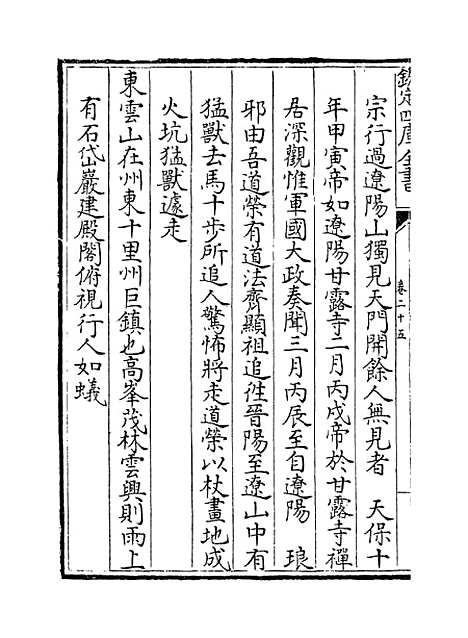 欽定四庫全書
卷二十五
宗行過遼陽山獨見天門開餘人無見者　天保十
年甲寅帝如遼陽甘露寺二月丙戌帝於甘露寺禪
居深觀惟軍國大政奏聞三月丙辰至自遼陽　琅
邪由吾道榮有道法齊顯祖追徃晉陽至遼山中有
猛獸去馬十步所追人驚怖將走道榮以杖畫地成
火坑猛獸遽走
東雲山在州東十里州巨鎮也高峯茂林雲興則雨上
有石岱巖建殿閣俯視行人如蟻